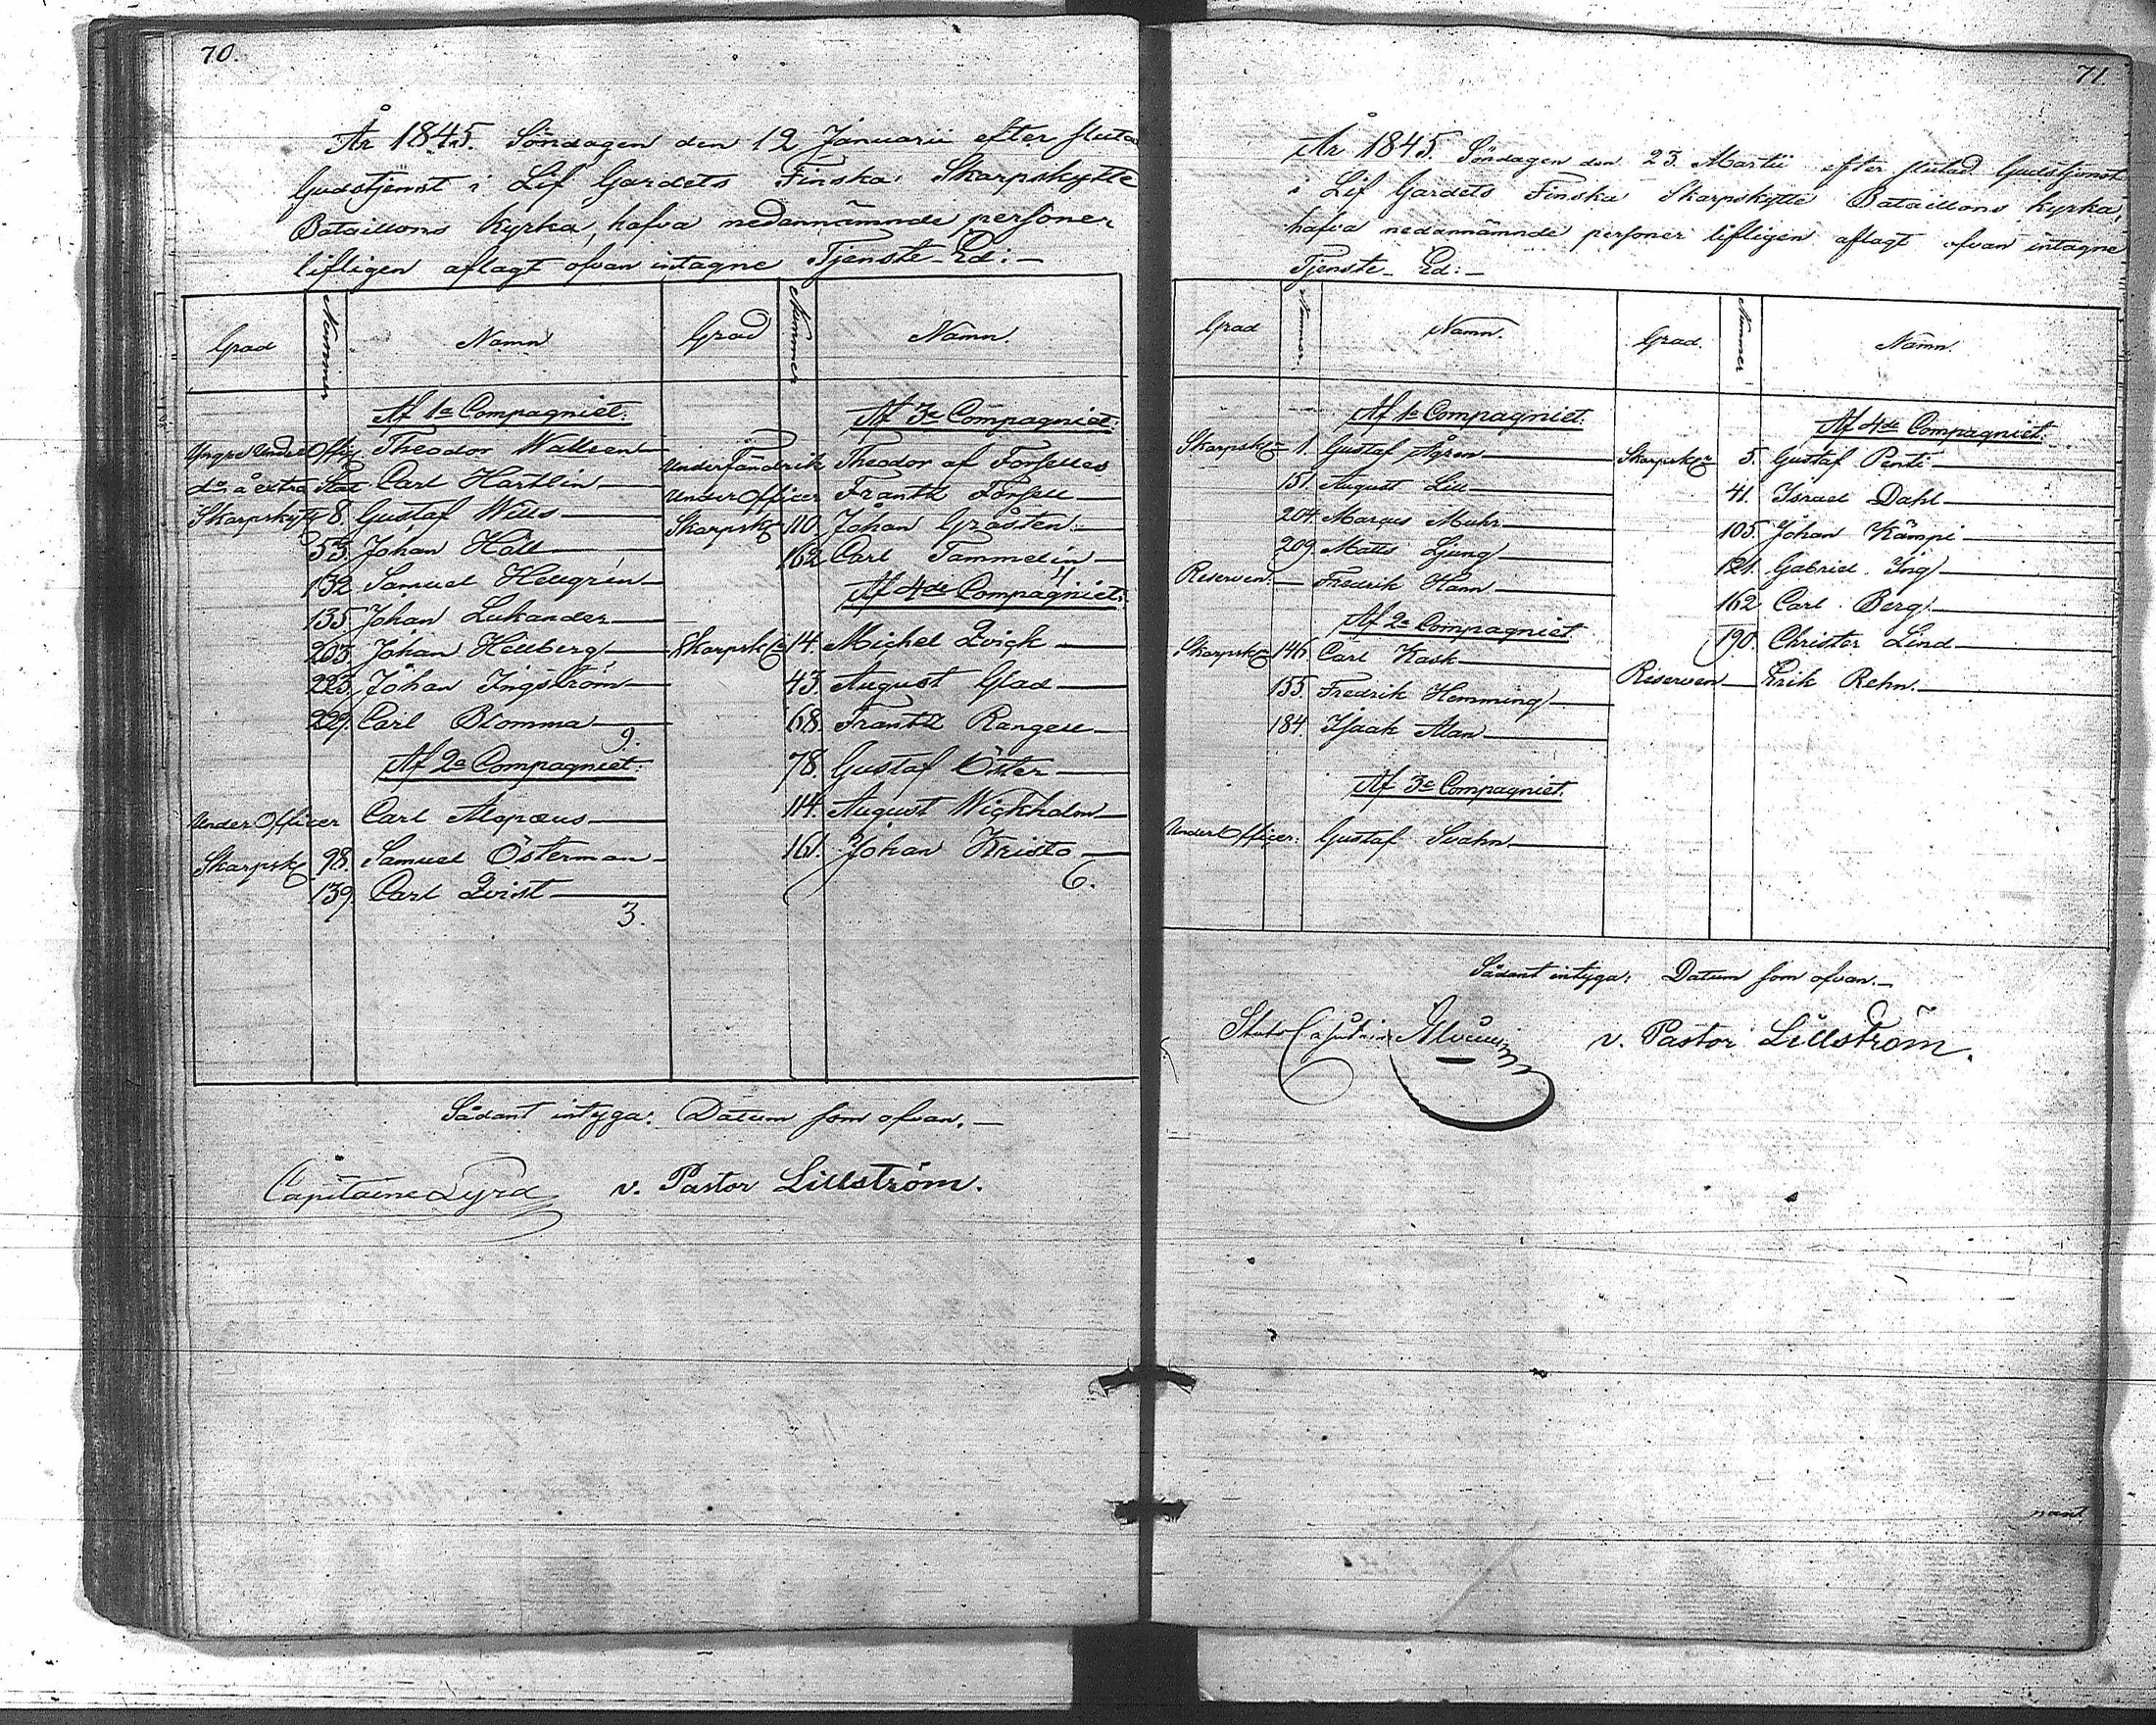 70.
År 1845. Söndagen den 12 Januarii efter slutad
Gudstjenst i Lif Gardets Finska Skarpskytte
Bataillons Kyrka, hafva nedannämnde personer
lifligen aflagt ofvan intagne Tjenste-Ed:—
Grad Nummer Namn Grad Nummer Namn.
Af 1a Compagniet.
Yngre Under Offic. Theodor Walleen
do å extra Stat Carl Hartlin
Skarpsk 8. Gustaf Wills
53. Johan Häll
132. Samuel Hellgrén
135. Johan Lukander
203. Johan Hellberg
223. Johan Ingström
229. Carl Blomma
9.
Af 2a Compagniet.
Under Officer Carl Alopæus
Skarpsk 98. Samuel Österman
139. Carl Qvist
3.
Af 3e Compagniet.
Underfändrik Theodor af Forselles
Under Officer Frantz Forsell
Skarpsk 110. Johan Gråsten
162. Carl Tammelin
4
Af 4de Compagniet.
Skarpsk 14. Michel Qvick
43. August Glad
68. Frantz Rangell
78. Gustaf Öster
114. August Wickholm
161. Johan Kristo
6.
Sådant intyga: Datum som ofvan.—
Capitaine Lyra v. Pastor Lillström.
71.
År 1845. Söndagen den 23. Martii efter slutad Gudstjenst
i Lif Gardets Finska Skarpskytte Bataillons Kyrka,
hafva nedannämnde personer lifligen aflagt ofvan intagne
Tjenste-Ed:—
Grad Nummer. Namn. Grad. Nummer Namn.
Af 1e Compagniet.
Skarpsk 1. Gustaf Ågren
151. August Lill
204. Marcus Muhr
209. Matts Ljung
Reserven. Fredrik Hann
Af 2a Compagniet
Skarpsk 146. Carl Kask
155. Fredrik Hemming
184. Isaak Alan
Af 3e Compagniet.
Under Officer: Gustaf Svahn
Af 4de Compagniet.
Skarpsk 5. Gustaf Penti
41. Israel Dahl
105. Johan Kämpi
121. Gabriel Ing
162. Carl Berg
190. Christer Lind
Reserven Erik Rehn.
Sådant intyga: Datum som ofvan.—
Stabs Capitaine v. Pastor Lillström.